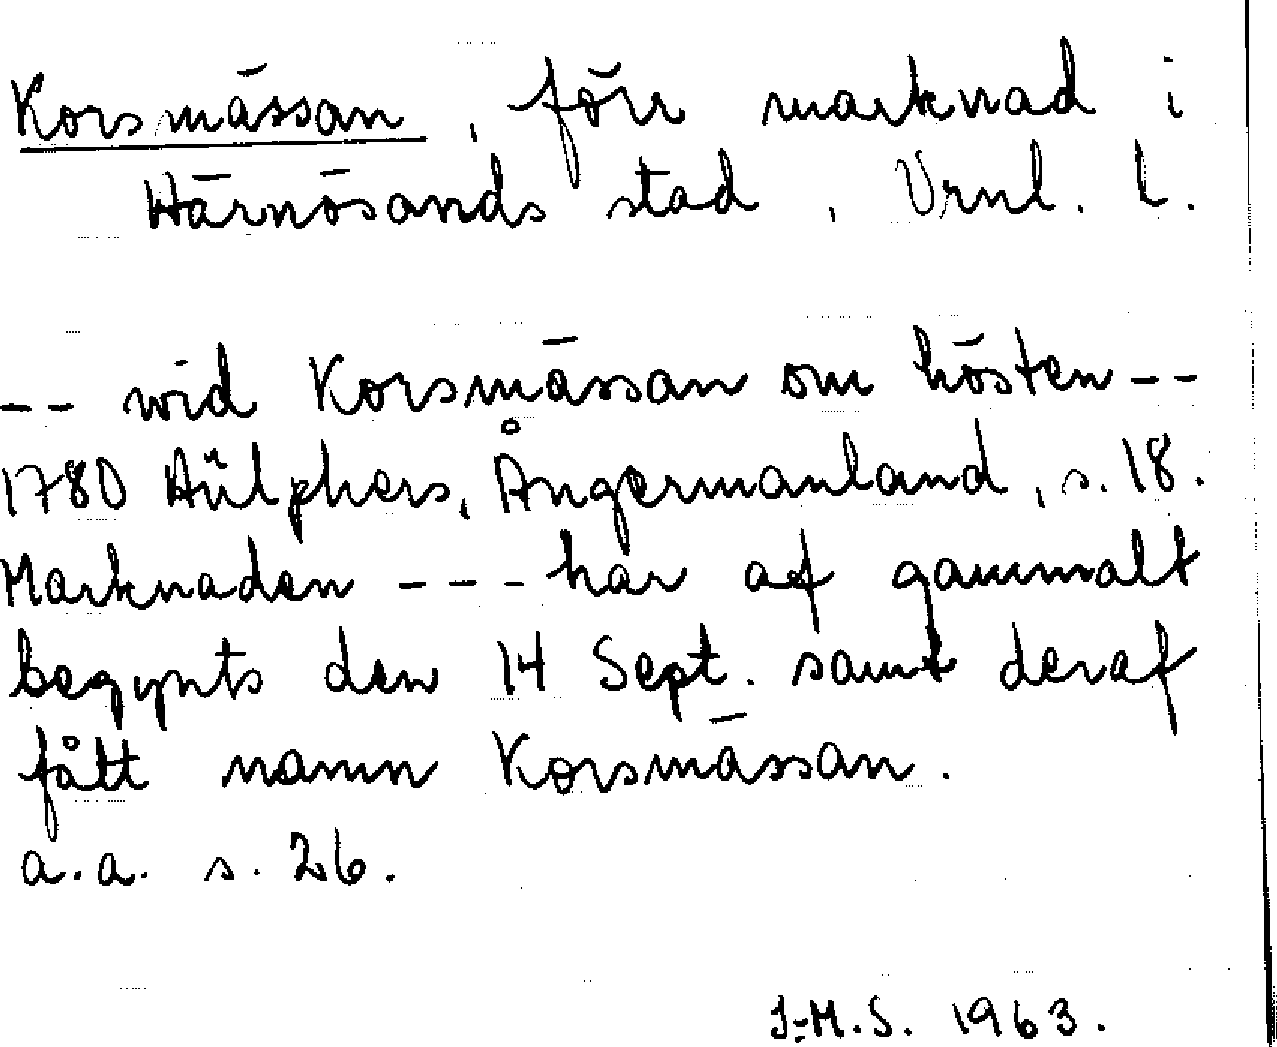 Korsmässan, förr marknad i
Härnösands stad, Vrnl. L.
-- wid Korsmässan om hösten --
1780 Hülphers, Ångermanland, s. 18.
Marknaden --- har af gammalt
begynts den 14 Sept. samt deraf
fått namn Korsmässan.
a.a. s. 26.
J-M.S. 1963.